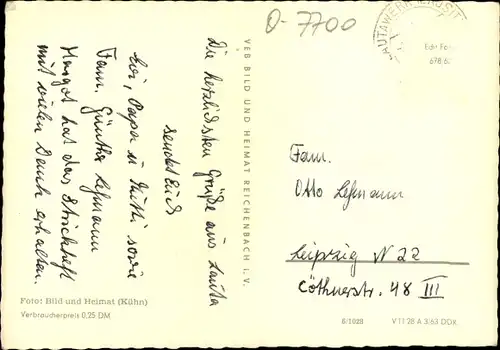 O-7700
LAUTAWERK (LAUSIT
Die herzlichsten Grüße aus Lauta
sendet Euch
Evi, Papa u Mutti sowie
Fam. Günther Lehmann
Margot hat das Strickheft
mit vielen Dank erhalten.
Foto: Bild und Heimat (Kühn)
Verbraucherpreis 0,25 DM
VEB BILD UND HEIMAT REICHENBACH i. V.
678,62
Fam.
Otto Lehmann
Leipzig N 22
Cöthnerstr. 48 III
8/1028 V 11 28 A 3/63 DDR